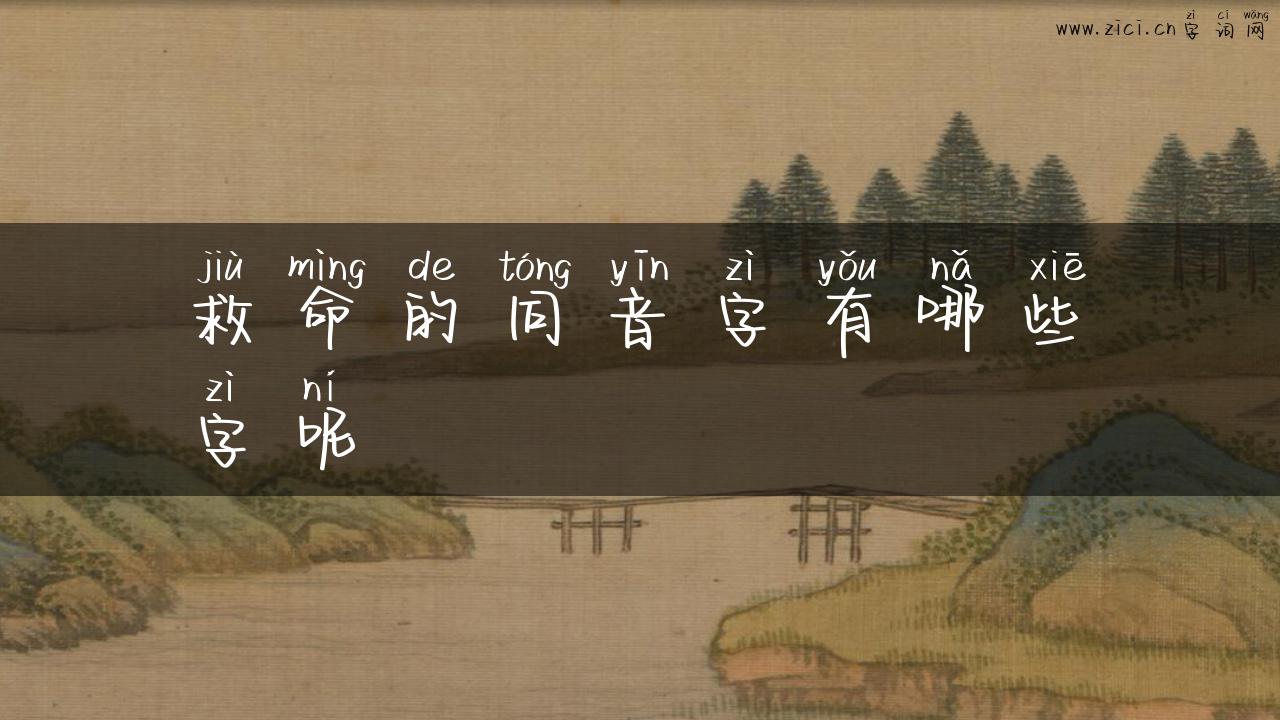 zì cí wǎng
www.zici.cn 字词网
jiù mìng de tóng yīn zì yǒu nǎ xiē
救命的同音字有哪些
zì ní
字呢